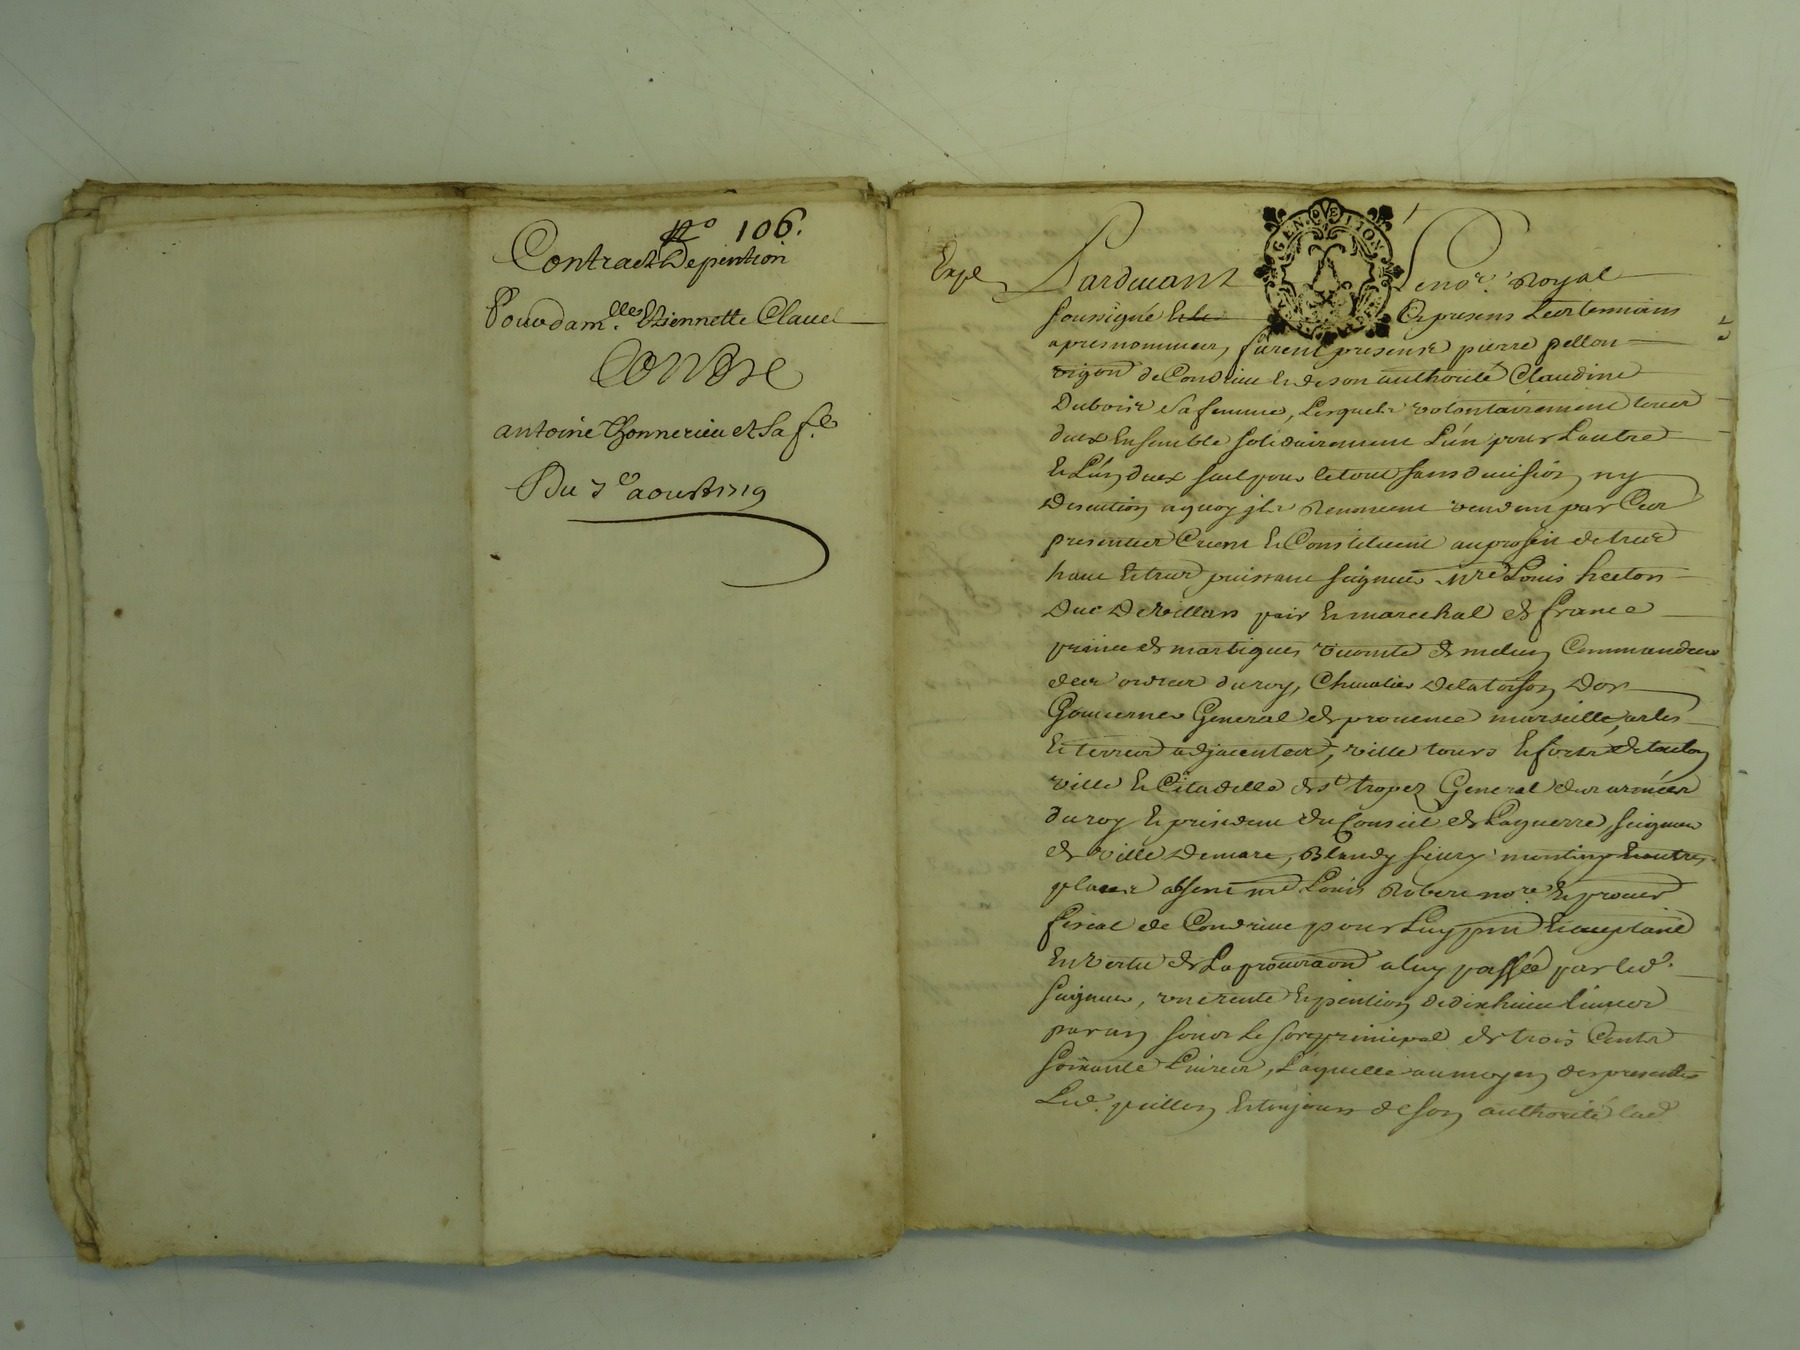 N.o 106.
Contract De pention
Pour dam.lle Etiennette Clavel
Contre
antoine Thonnerieu et Sa f.e
Du 7e aoust 1719
Expe
GEN. DE LION
Pardevant Le no.re Royal
soussigné Et le Et presens Les tesmoins
apres nommes, furent presens pierre pellon
vigon de Condrieu et de son authorité Claudine
Dubois sa femme, Lesquels volontairement tous
deux Ensemble solidairement L'un pour Lautre
et L'un deux seul pour le tout sans division ny
Discution a quoy ils Renoncent vendent par Ces
presentes Créent et Constituent au profit de tres
haut et tres puissant seigneur Mre Louis hector
Duc De villars pair et marechal de france
prince de martigues vicomte de melun Commandeur
des ordres du roy, Chevalier De la toison Dor
Gouverneur General de provence marseille, arles
et terres adjacentes, ville tours et forts de toulon
ville et Citadelle de st tropez General des armées
du roy et president du Conseil de La guerre, seigneur
de ville Demare, Blandy et autres
places absent me Louis Robert no.re et procur
fiscal de Condrieu pour Luy pnt et acceptant
En vertu de La procuraon a luy passée par led.
seigneur, une rente et pention de dix huit Livres
par an sous le sort principal de trois Cents
soixante Livres, Laquelle au moyen des presentes
Led. pellon et toujours de son authorité lad.